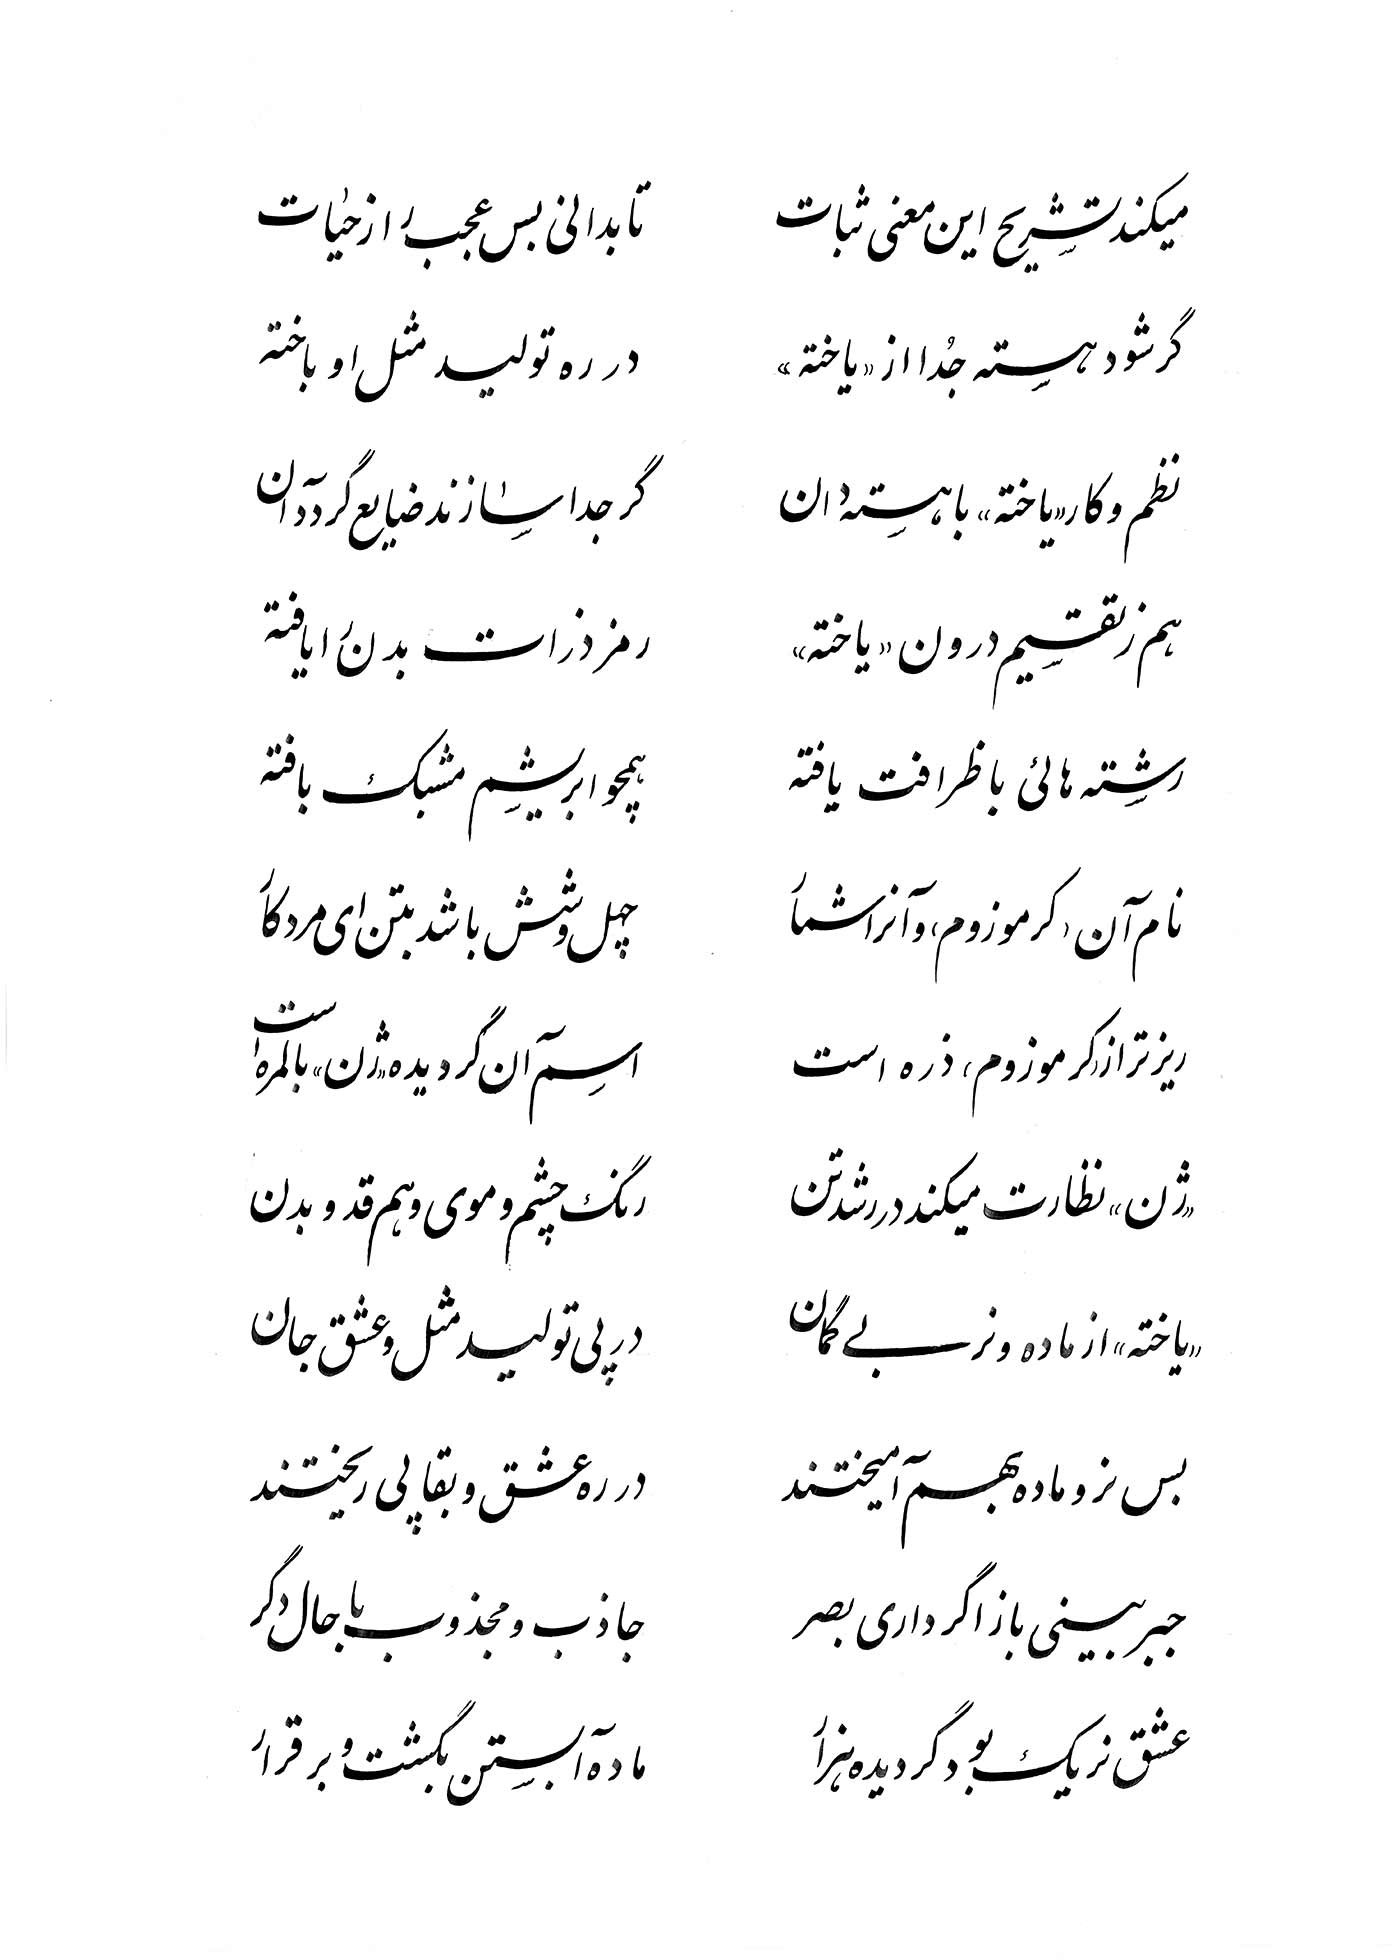 میکند تشریح این معنی ثبات    تا بدانی بس عجب راز حیات
گر شود هسته جُدا از «یاخته»    در ره تولید مثل او باخته
نظم و کار «یاخته» با هسته دان    گر جدا سازند ضایع گردد آن
هم ز تقسیم درون «یاخته»    رمز ذرات بدن را یافته
رشته هائی با ظرافت یافته    همچو ابریشم مشبک بافته
نام آن «کرموزوم» و آنرا شمار    چهل و شش باشد بتن ای مرد کار
ریزتر از «کرموزوم» ذره است    اسم آن گردیده «ژن» بالمره است
«ژن» نظارت میکند در رشد تن    رنگ چشم و موی و هم قد و بدن
«یاخته» از ماده و نر بی گمان    در پی تولید مثل و عشق جان
بس نر و ماده بهم آمیختند    در ره عشق و بقا پی ریختند
جبر بینی باز اگر داری بصر    جاذب و مجذوب با حال دگر
عشق نر یک بود گردیده هزار    ماده آبستن بگشت و برقرار